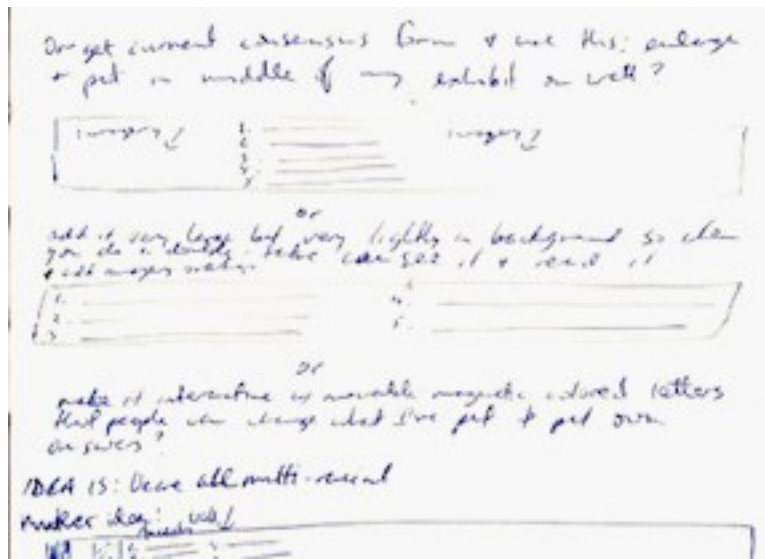 Or get current consensus from & use this; enlarge
& put in middle of exhibit on wall?
images?
1. images?
2
3
4
5
or
add it very large but very lightly in background so when
you do a double-take can see it & read it
& add images
1.
4.
2.
5.
3
or
make it interactive w movable magnetic colored letters
that people can change what I've put & put own
answers?
IDEA IS: Have all multi-
Another idea: